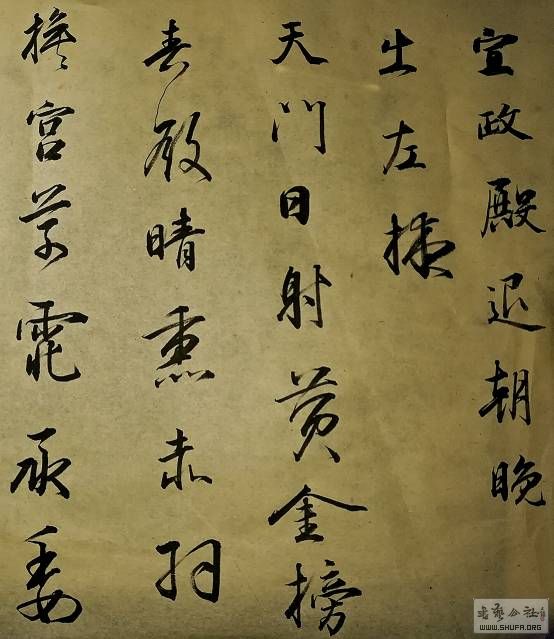 宣政殿退朝晚
出左掖
天門日射黃金榜
春殿晴熏赤羽
旗宮草霏承委
WWW.SHUFA.ORG